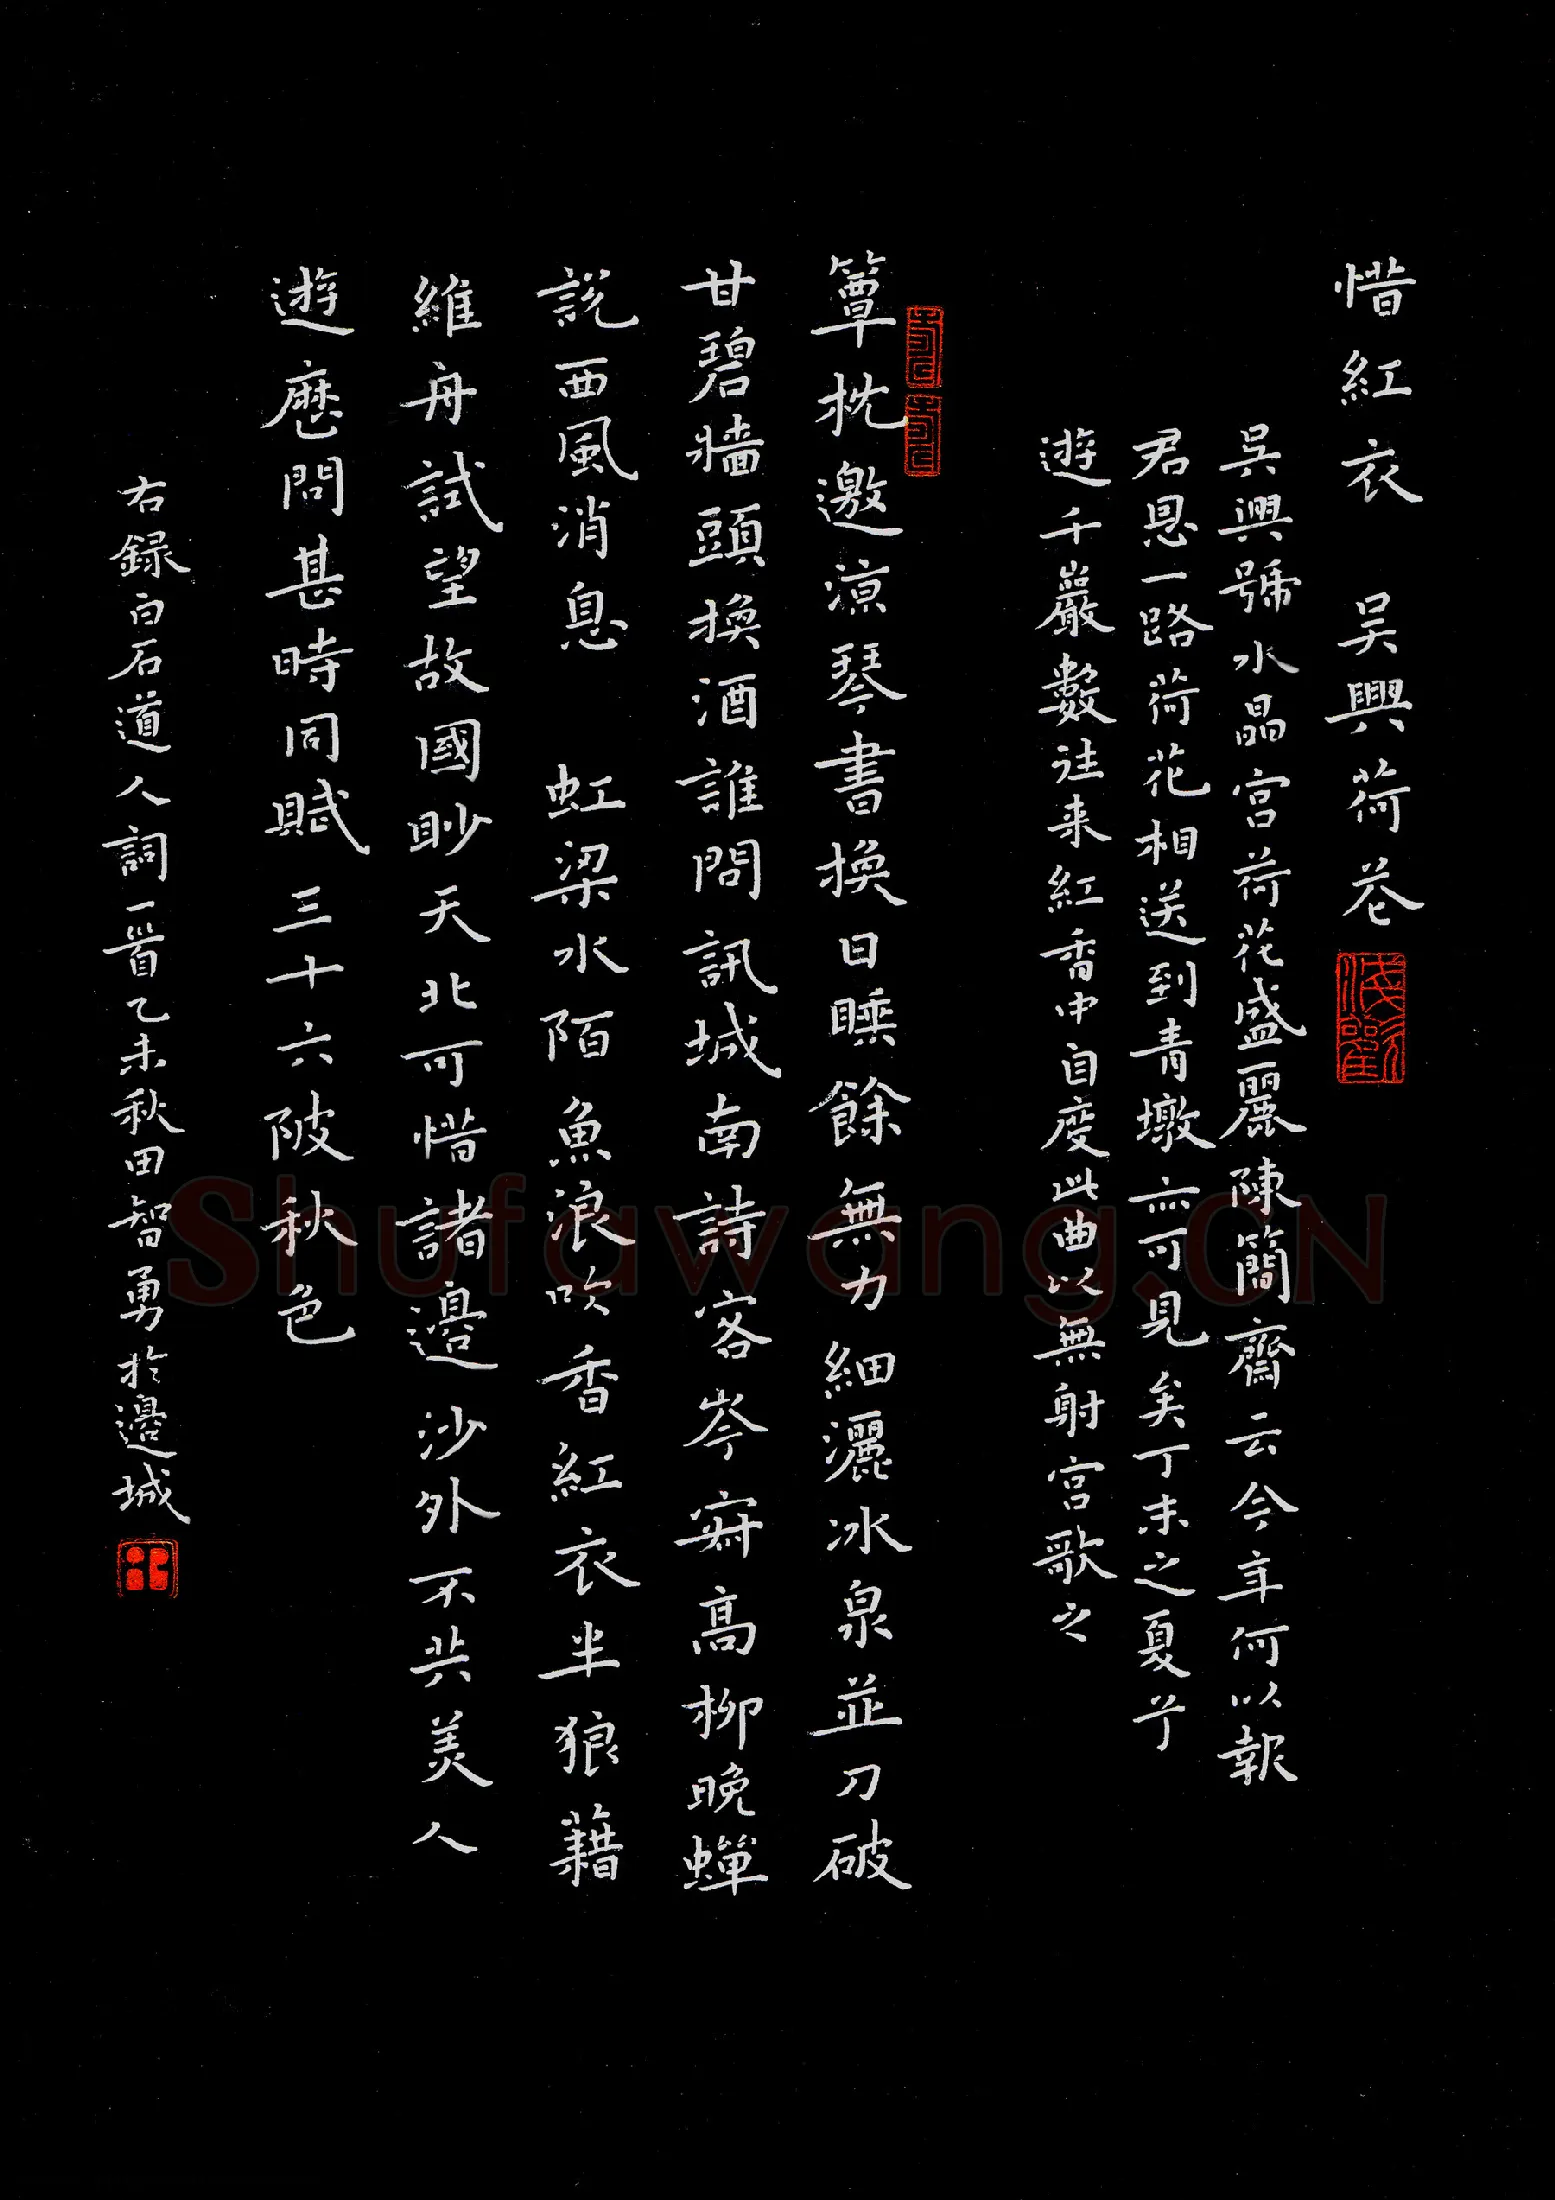 惜紅衣 吴興荷花
吳興號水晶宮荷花盛麗陳簡齋云今年何以報
君恩一路荷花相送到青墩亦可見矣丁未之夏予
遊千巖數往来紅香中自度此曲以無射宮歌之
簟枕邀涼琴書換日睡餘無力細灑冰泉並刀破
甘碧牆頭換酒誰問訊城南詩客岑寂高柳晚蟬
說西風消息 虹梁水陌魚浪吹香紅衣半狼藉
維舟試望故國眇天北可惜諸邊沙外不共美人
遊歷問甚時同賦三十六陂秋色
右録白石道人詞一首乙未秋田智勇於邊城
Shufawang.CN